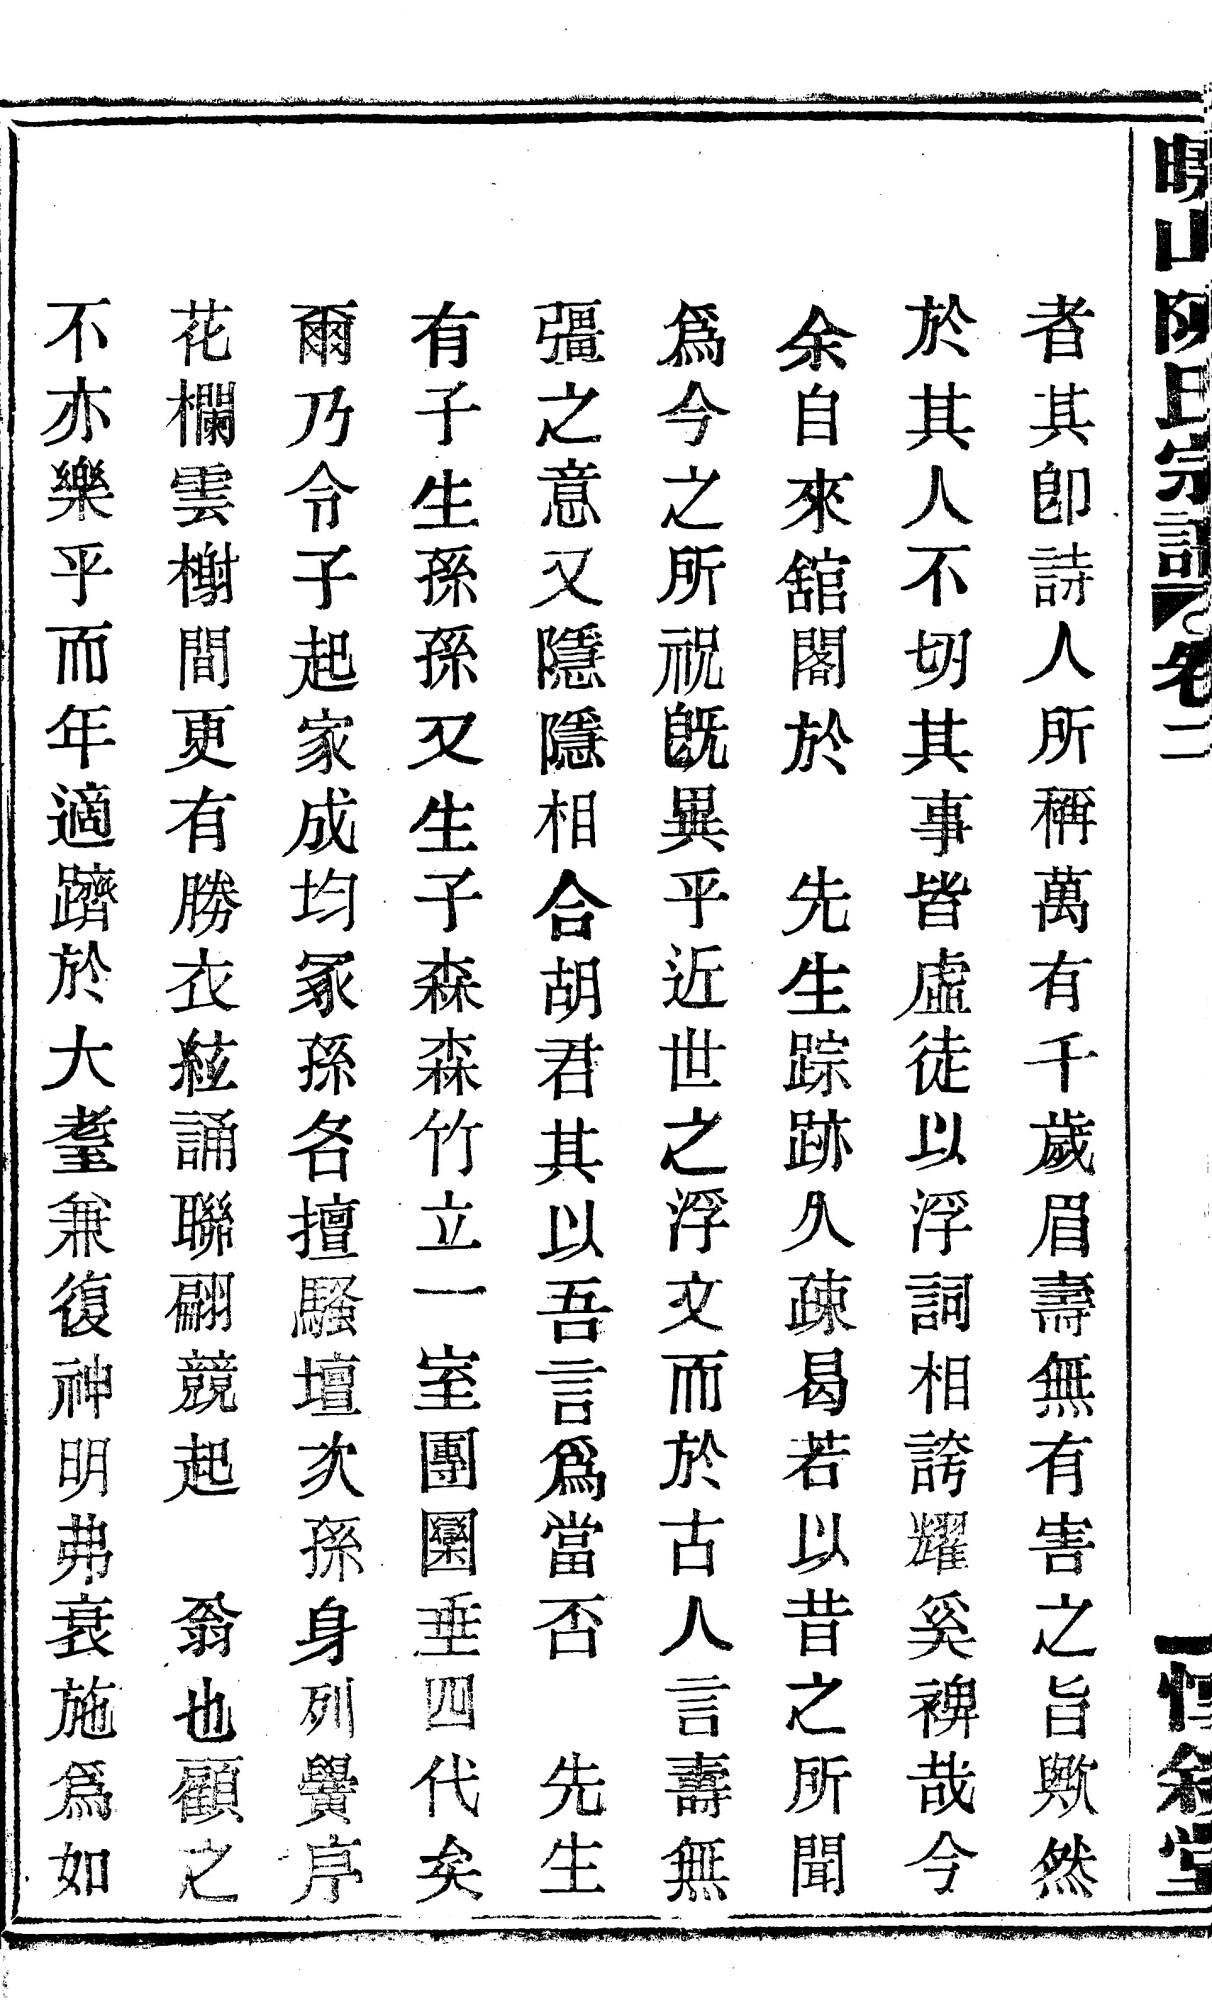 山陳氏宗譜 卷二
者其卽詩人所稱萬有千歲眉壽無有害之旨歟然
於其人不切其事皆虛徒以浮詞相誇耀奚裨哉今
余自來舘閣於 先生踪跡久疎曷若以昔之所聞
爲今之所祝旣異乎近世之浮文而於古人言壽無
彊之意又隱隱相合胡君其以吾言爲當否 先生
有子生孫孫又生子森森竹立一室團圞垂四代矣
爾乃令子起家家成均冢孫各擅騷壇次孫身列黌序
花欄雲榭間更有勝衣絃誦聯翩競起 翁也顧之
不亦樂乎而年適躋於大耋兼復神明弗衰施爲如
惇叙堂